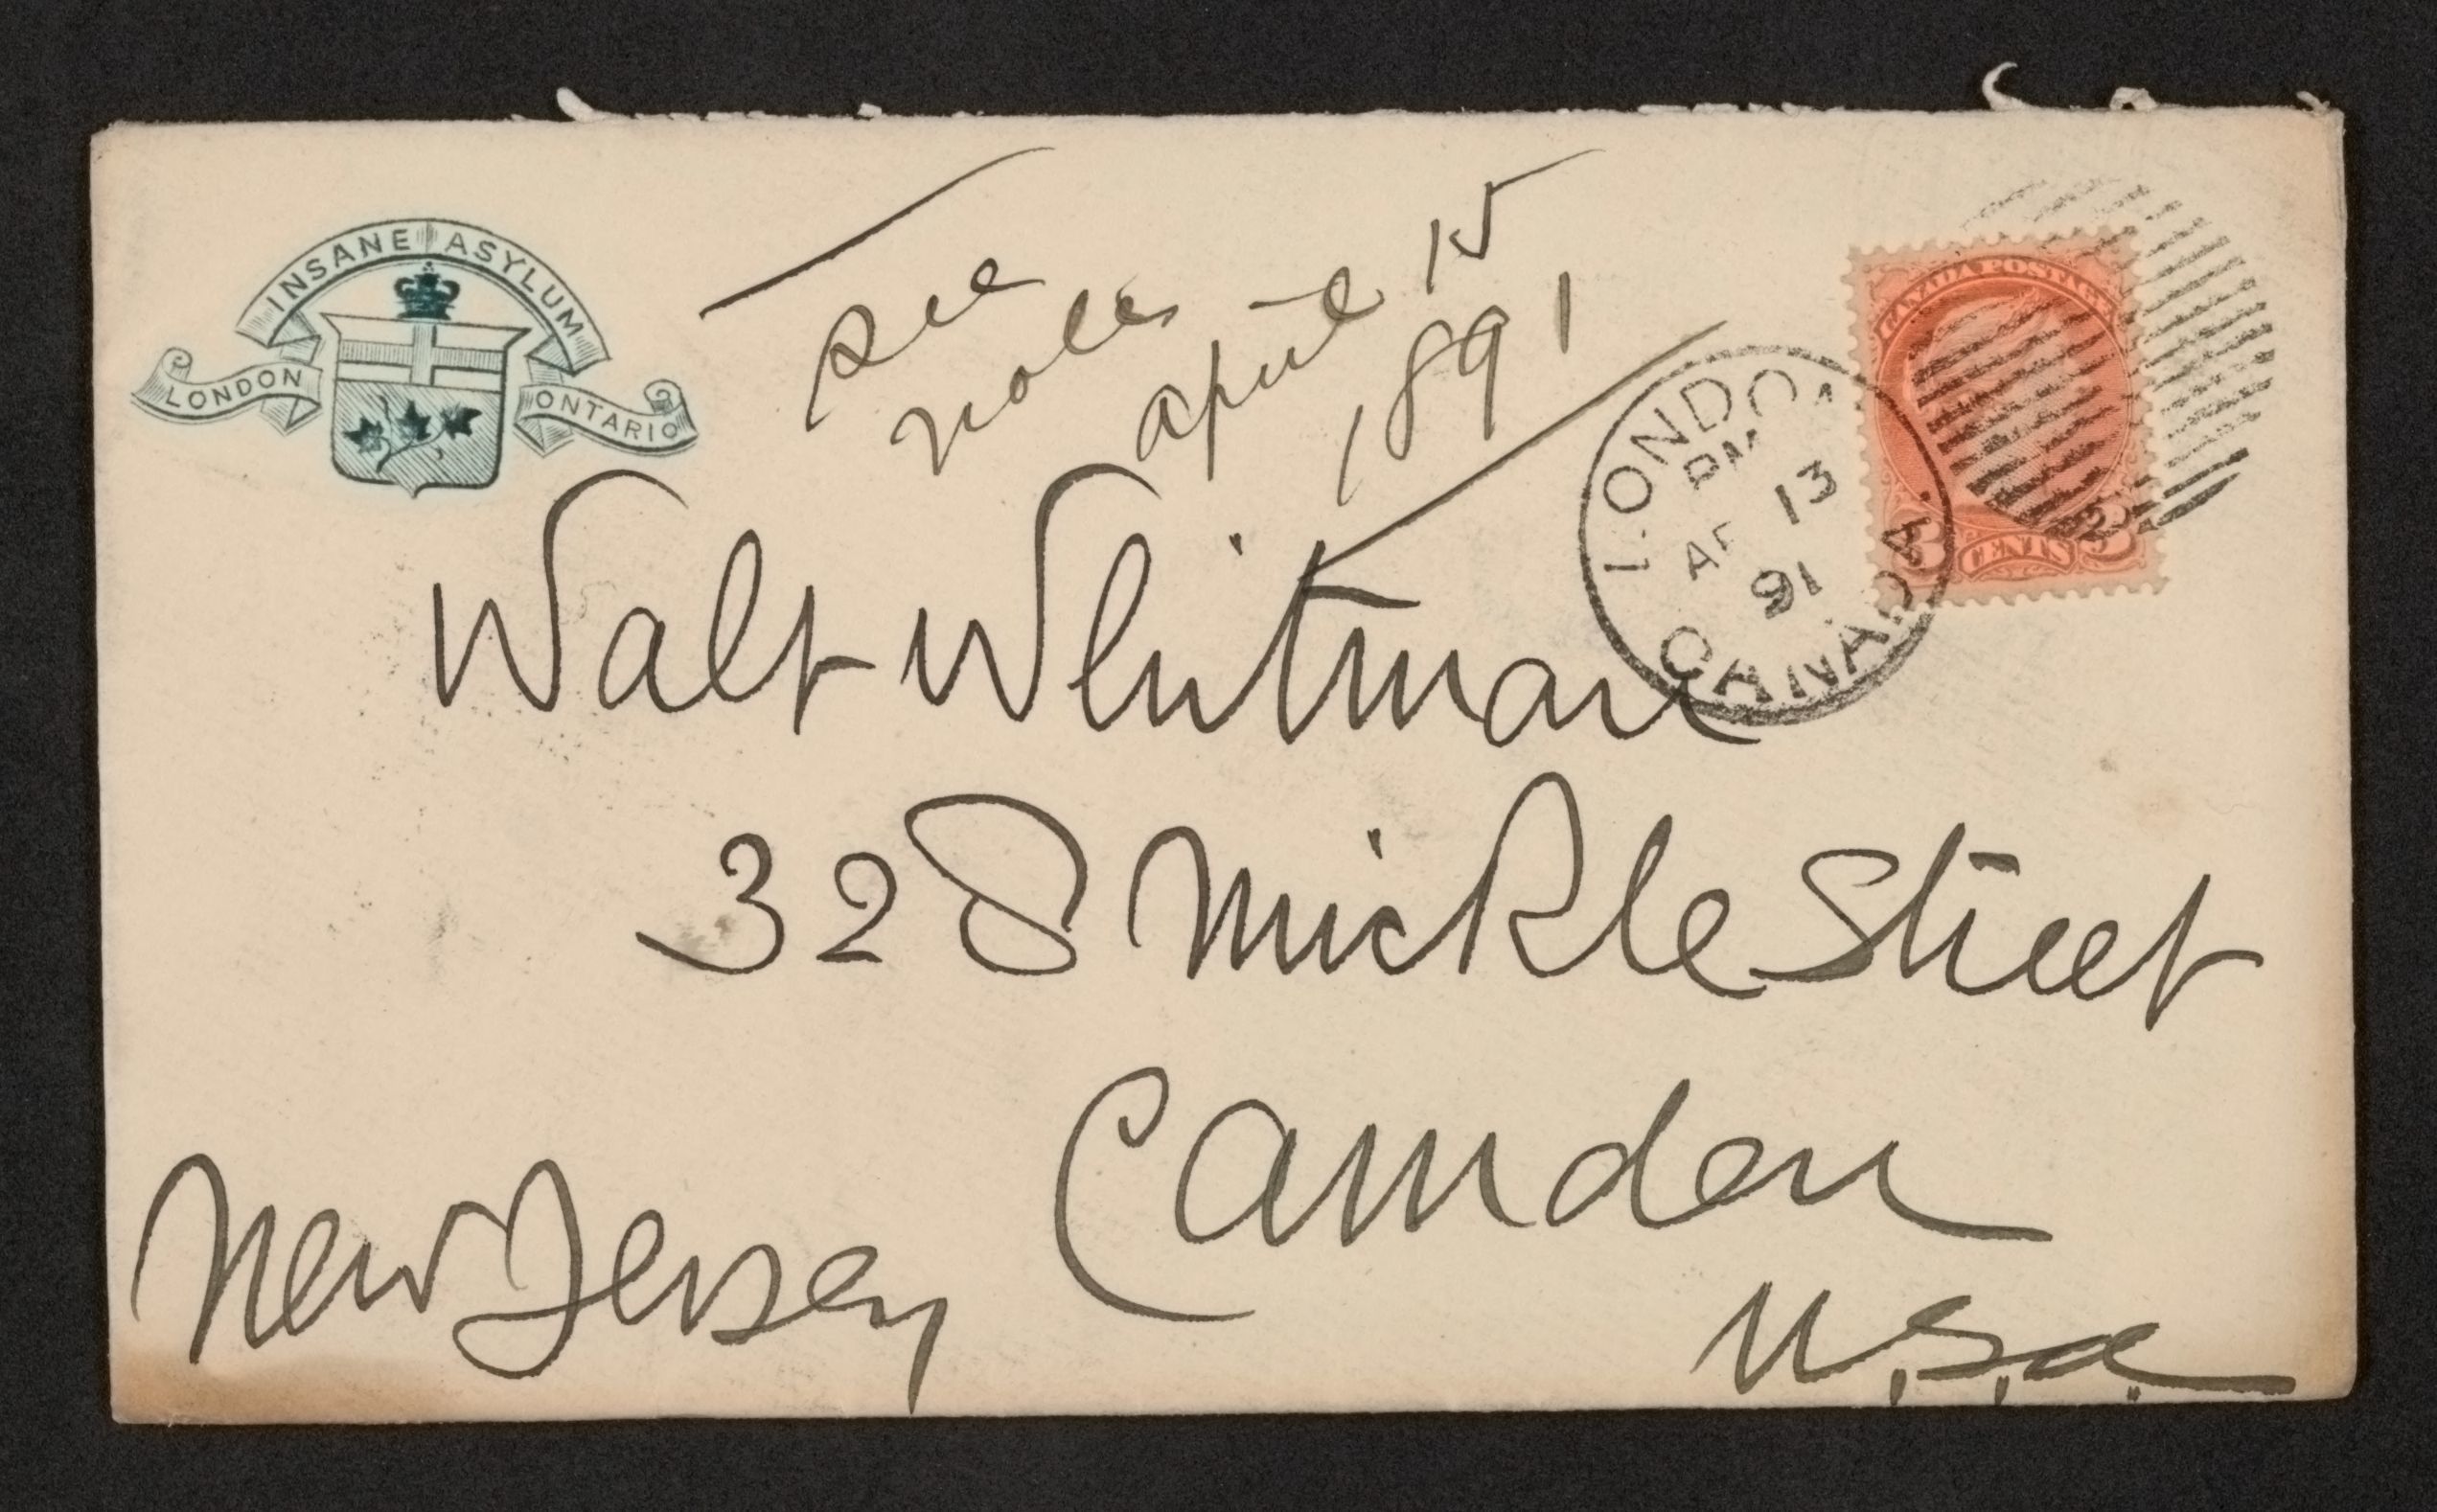 INSANE ASYLUM
LONDON ONTARIO
see
notes
april 15
1891
CANADA POSTAGE
3 CENTS 3
LONDON
PM
AP 13
91
CANADA.
Walt Whitman
328 Mickle Street
Camden
New Jersey
U.S.A.